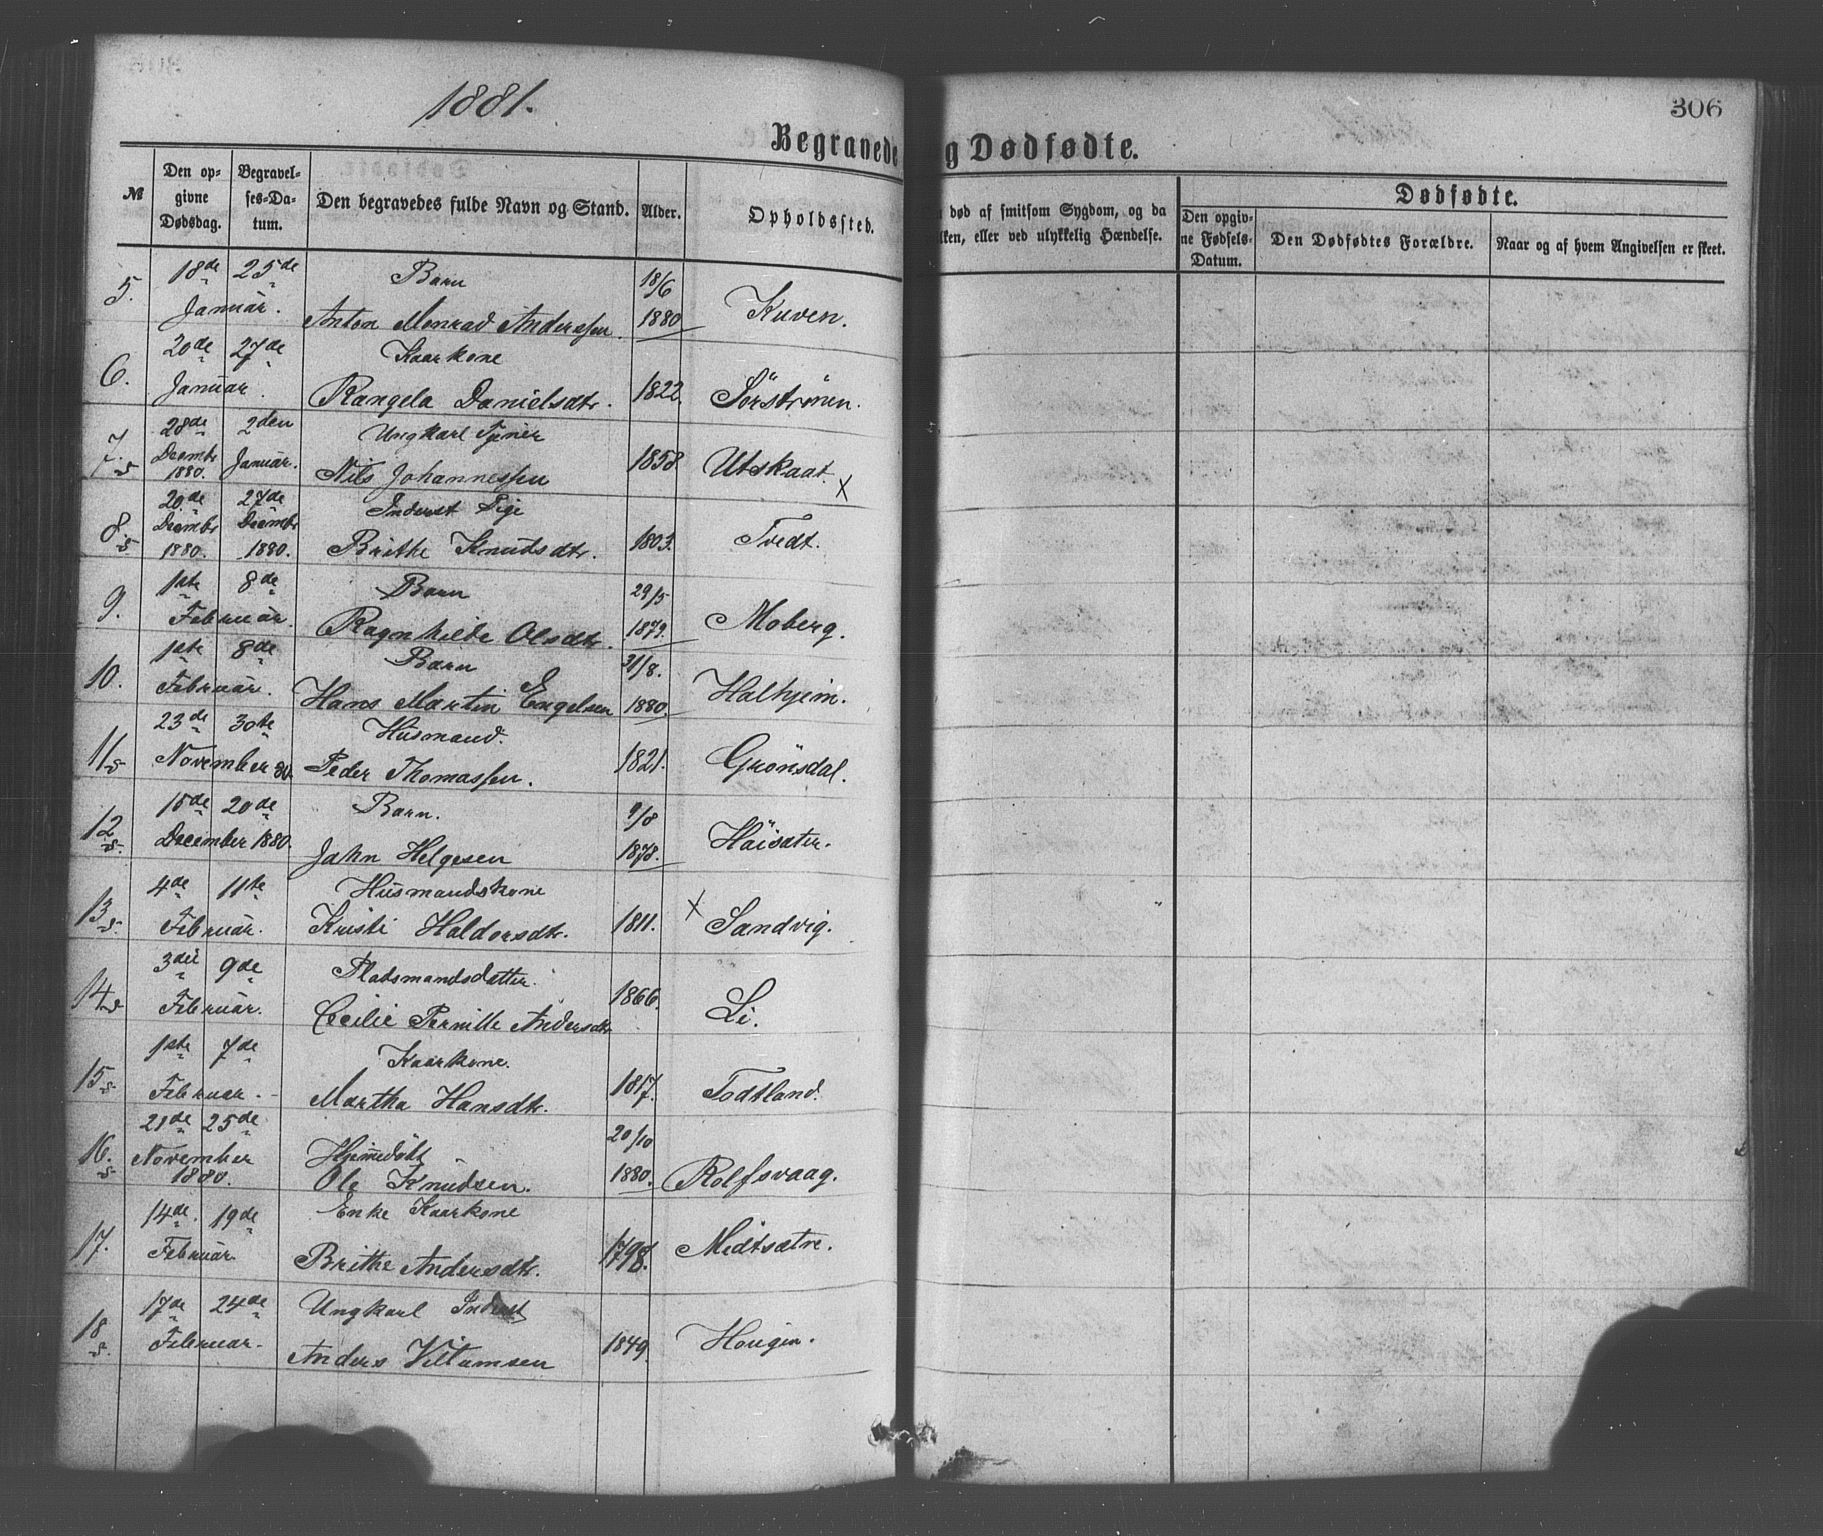 1881.
306
Begravede
g Dødfødte.
№
Den op-
givne
Dødsdag.
Begravel-
ses-Da-
tum.
Den begravedes fulde Navn og Stand.
Alder.
Opholdssted.
død af smitsom Sygdom, og da
lken, eller ved ulykkelig Hændelse.
Dødfødte.
Den opgiv-
ne Fødsels-
Datum.
Den Dødfødtes Forældre.
Naar og af hvem Angivelsen er skeet.
5. 18de 25de Barn 18/6
Januar. Anton Monrad Anderssen. 1880 Kuven.
6. 20de 27de Kaarkone
Januar. Rangela Danielsdtr. 1822. Sörströnen.
7. 28de 2den Ungkarl Tjener
s Decembr Januar. Nils Johannessen 1858. Utskaat. X
1880.
8. 20de 27de Inderst Pige
s Decembr Decembr Brithe Knudsdtr. 1803. Tvedt.
1880. 1880.
9. 1ste 8de Barn 29/5
Februar. Ragnhilde Olsdtr. 1879. Moberg.
10. 1ste 8de Barn 31/8.
Februar. Hans Martin Engelsen 1880. Halhjem.
11 s 23de 30te Husmand.
November 80. Peder Thomassen. 1821. Grönsdal.
12 s. 15de 20de Barn. 9/8
December 1880. Jahn Helgesen 1878. Höisæter.
13 s. 4de 11te Husmandskone
Februar. Kristi Haldorsdtr. 1811. X Sandvig.
14 s 3die 9de Pladsmandsdatter.
Februar. Cecilie Pernille Andersdtr 1866. Li.
15 s 1ste 7de Kaarkone.
Februar. Martha Hansdtr. 1817. Todtland.
16. s 21de 25de Hjemmedöbt 20/10
November Ole Knudsen. 1880. Rolfsvaag.
1880.
17. 14de. 19de Enke Kaarkone
Februar. Brithe Andersdtr. 1798. Midtsætre.
18 s. 17de 24de Ungkarl Inderst
Februar. Anders Villumsen 1849. Hougen.